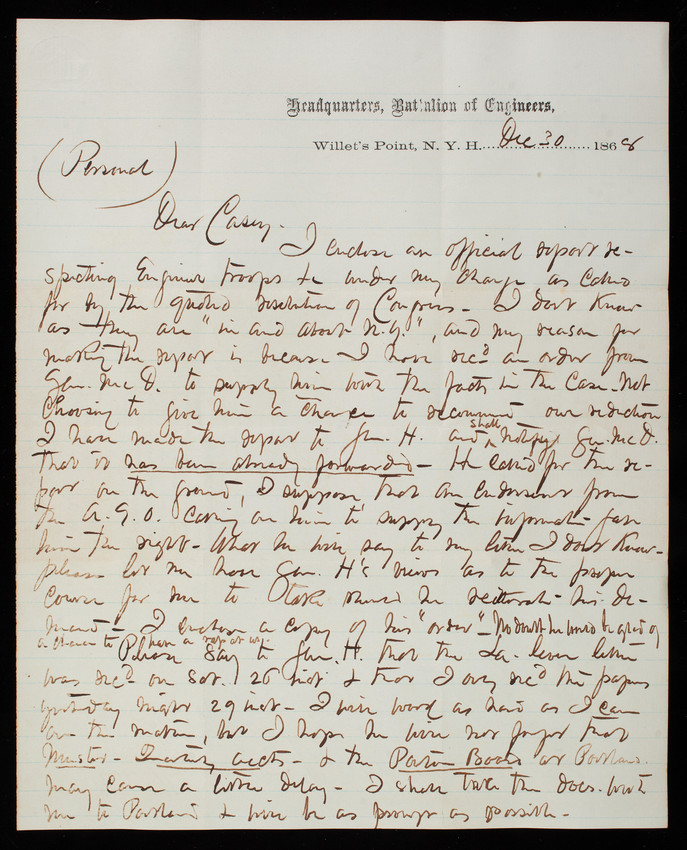 Headquarters, Battalion of Engineers,
Willet's Point, N. Y. H. Dec 30 1868
(Personal)
Dear Casey -
I enclose an official report re-
specting Engineer troops &c under my charge as called
for by the quoted resolution of Congress - I don't know
as they are "in and about N.Y.", and my reason for
making the report is because I have rec'd an order from
Gen. McD. to supply him with the facts in the case. Not
choosing to give him a chance to recommend our reduction
I have made the report to Gen. H. and shall notify Gen. McD.
that it has been already forwarded - He called for the re-
port on the ground, I suppose, that an endorsement from
the A.G.O. calling on him to supply the information gave
him the right - What he will say to my letter I don't know -
please let me have Gen. H's views as to the proper
course for me to take should he reiterate his de-
mand - I enclose a copy of his "order" - No doubt he would be glad of
a chance to have a rap at us.
Please say to Gen. H. that the letter
was rec'd on Sat. 26 inst & that I only rec'd the papers
yesterday night 29 inst - I will work as hard as I can
on the matter, but I hope he will not forget that
Muster - Quarterly accts - & the Board at Portland
may cause a little delay - I shall take the docs. with
me to Portland & will be as prompt as possible -